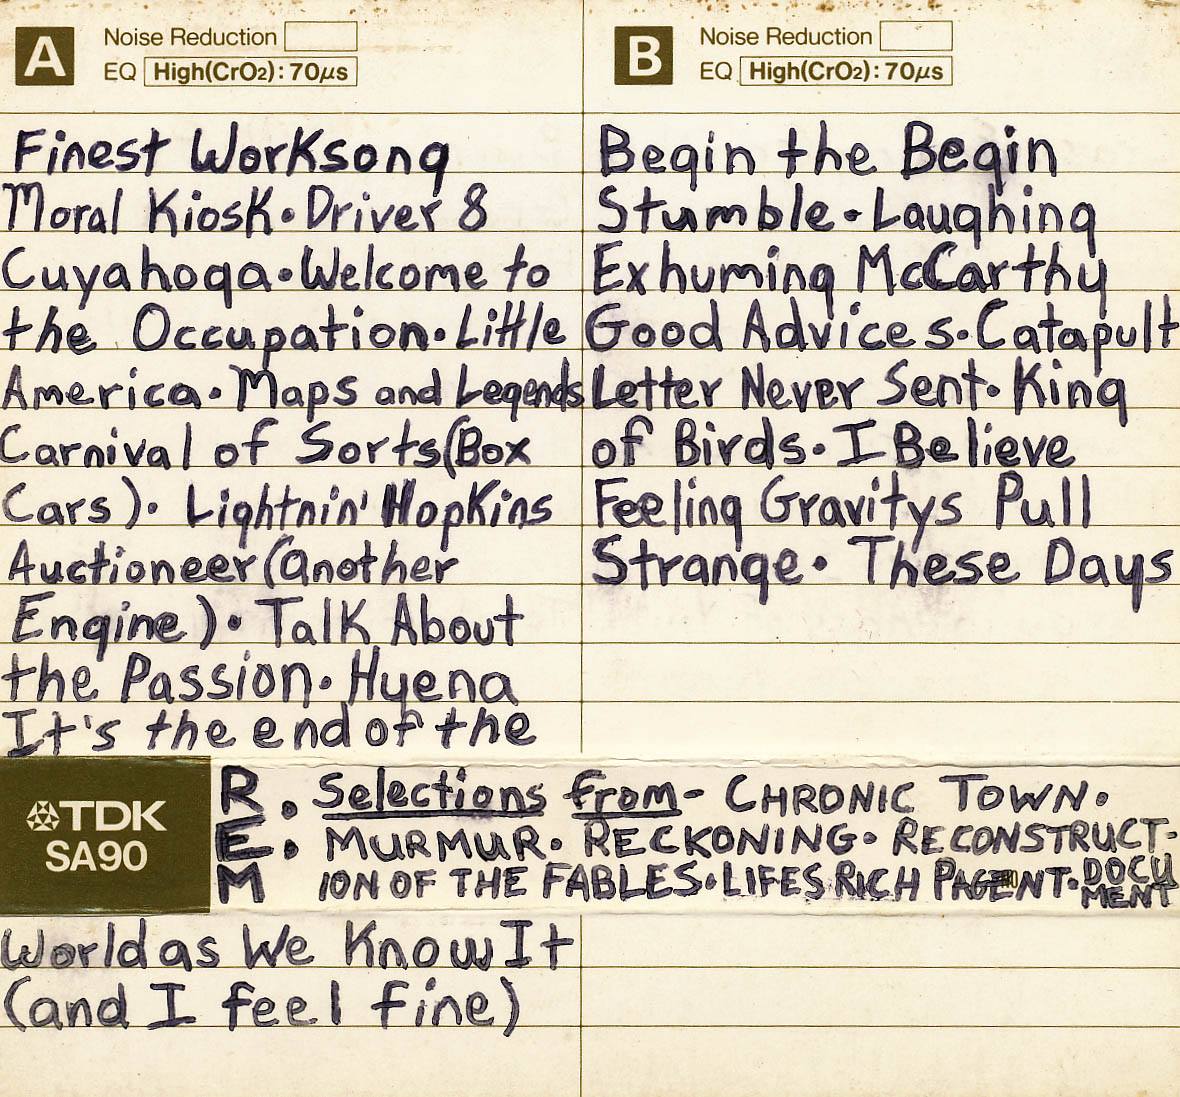 A
Noise Reduction
EQ High(CrO2): 70μs
Finest Worksong
Moral Kiosk • Driver 8
Cuyahoga • Welcome to
the Occupation • Little
America • Maps and Legends
Carnival of Sorts (Box
Cars) • Lightnin' Hopkins
Auctioneer (Another
Engine) • Talk About
the Passion • Hyena
It's the end of the
B
Noise Reduction
EQ High(CrO2): 70μs
Begin the Begin
Stumble • Laughing
Exhuming McCarthy
Good Advices • Catapult
Letter Never Sent • King
of Birds • I Believe
Feeling Gravitys Pull
Strange • These Days
TDK
SA90
R.E.M
Selections from - CHRONIC TOWN •
MURMUR • RECKONING • RECONSTRUCT-
ION OF THE FABLES • LIFES RICH PAGENT • DOCU
MENT
World as We Know It
(and I feel fine)